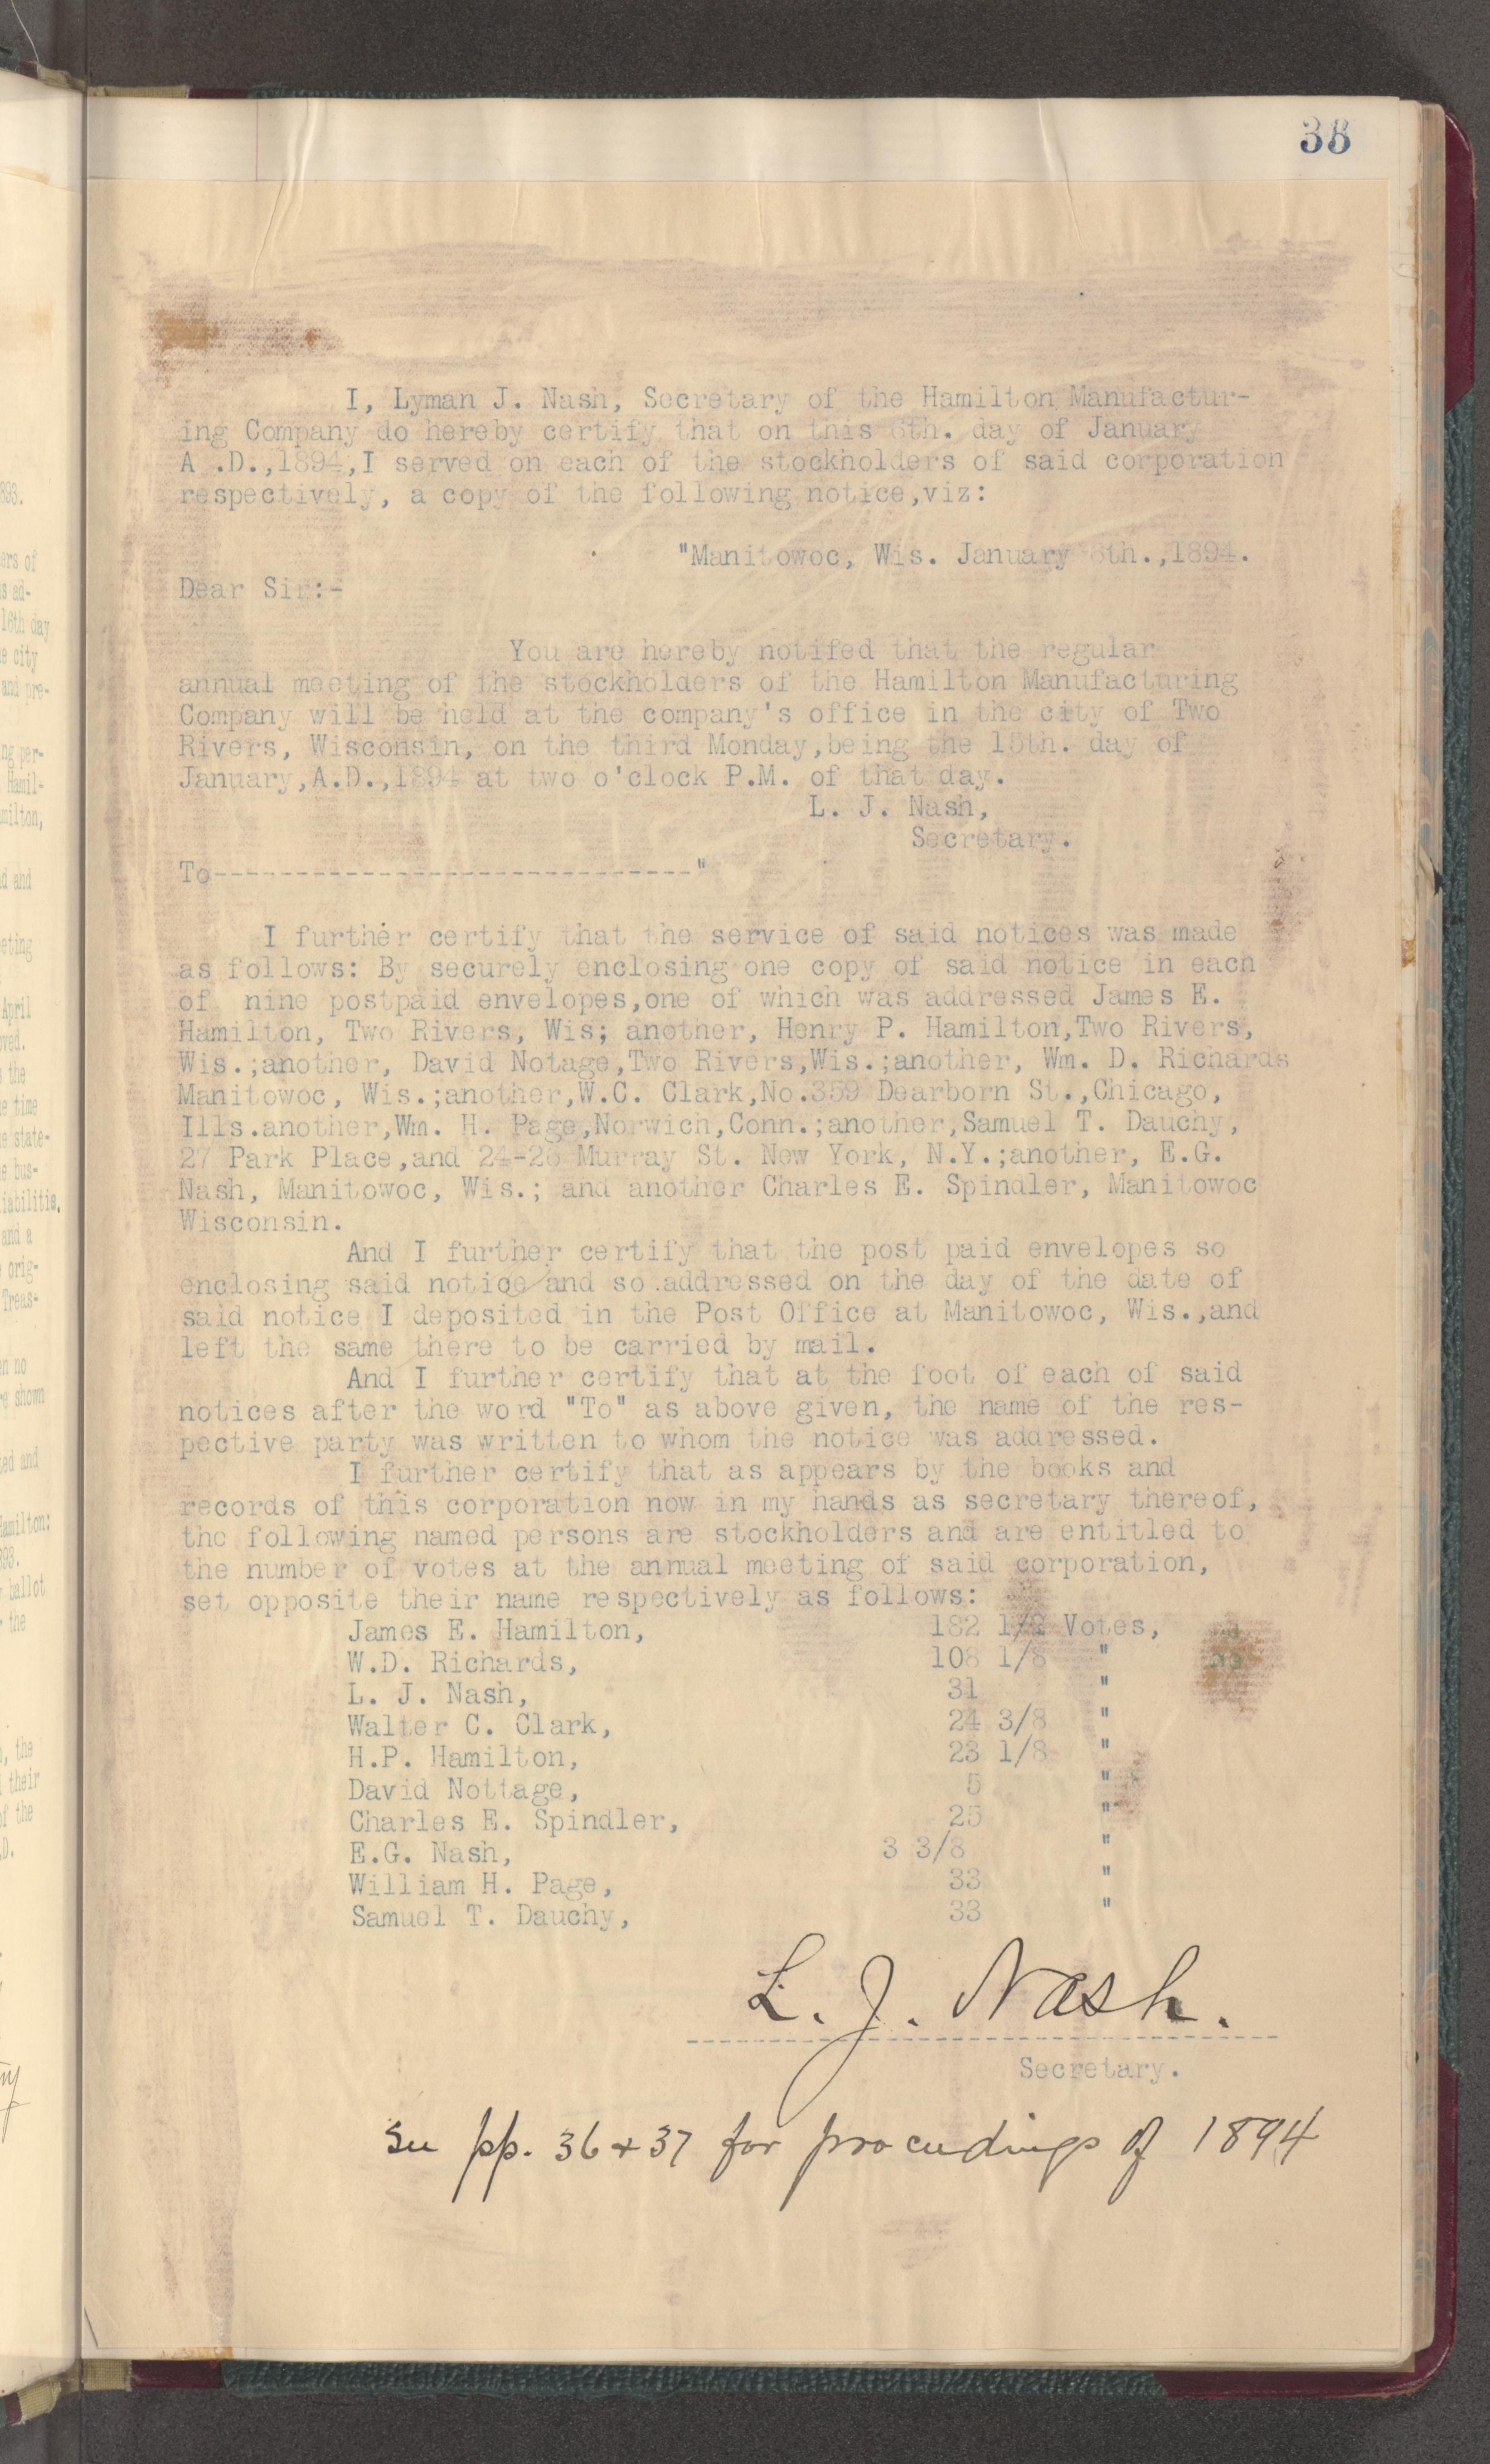 38
I, Lyman J. Nash, Secretary of the Hamilton Manufactur-
ing Company do hereby certify that on this 6th. day of January
A .D.,1894,I served on each of the stockholders of said corporation
respectively, a copy of the following notice,viz:
"Manitowoc, Wis. January 6th.,1894.
Dear Sir:-
You are hereby notifed that the regular
annual meeting of the stockholders of the Hamilton Manufacturing
Company will be held at the company's office in the city of Two
Rivers, Wisconsin, on the third Monday,being the 15th. day of
January,A.D.,1894 at two o'clock P.M. of that day.
L. J. Nash,
Secretary.
To-----------------------------"
I further certify that the service of said notices was made
as follows: By securely enclosing one copy of said notice in each
of nine postpaid envelopes,one of which was addressed James E.
Hamilton, Two Rivers, Wis; another, Henry P. Hamilton,Two Rivers,
Wis.;another, David Notage,Two Rivers,Wis.;another, Wm. D. Richards
Manitowoc, Wis.;another,W.C. Clark,No.359 Dearborn St.,Chicago,
Ills.another,Wm. H. Page,Norwich,Conn.;another,Samuel T. Dauchy,
27 Park Place,and 24-26 Murray St. New York, N.Y.;another, E.G.
Nash, Manitowoc, Wis.; and another Charles E. Spindler, Manitowoc
Wisconsin.
And I further certify that the post paid envelopes so
enclosing said notice and so addressed on the day of the date of
said notice I deposited in the Post Office at Manitowoc, Wis.,and
left the same there to be carried by mail.
And I further certify that at the foot of each of said
notices after the word "To" as above given, the name of the res-
pective party was written to whom the notice was addressed.
I further certify that as appears by the books and
records of this corporation now in my hands as secretary thereof,
the following named persons are stockholders and are entitled to
the number of votes at the annual meeting of said corporation,
set opposite their name respectively as follows:
James E. Hamilton, 182 1/2 Votes,
W.D. Richards, 108 1/8 "
L. J. Nash, 31 "
Walter C. Clark, 24 3/8 "
H.P. Hamilton, 23 1/8 "
David Nottage, 5 "
Charles E. Spindler, 25 "
E.G. Nash, 3 3/8 "
William H. Page, 33 "
Samuel T. Dauchy, 33 "
L. J. Nash.
Secretary.
See pp. 36 & 37 for proceedings of 1894